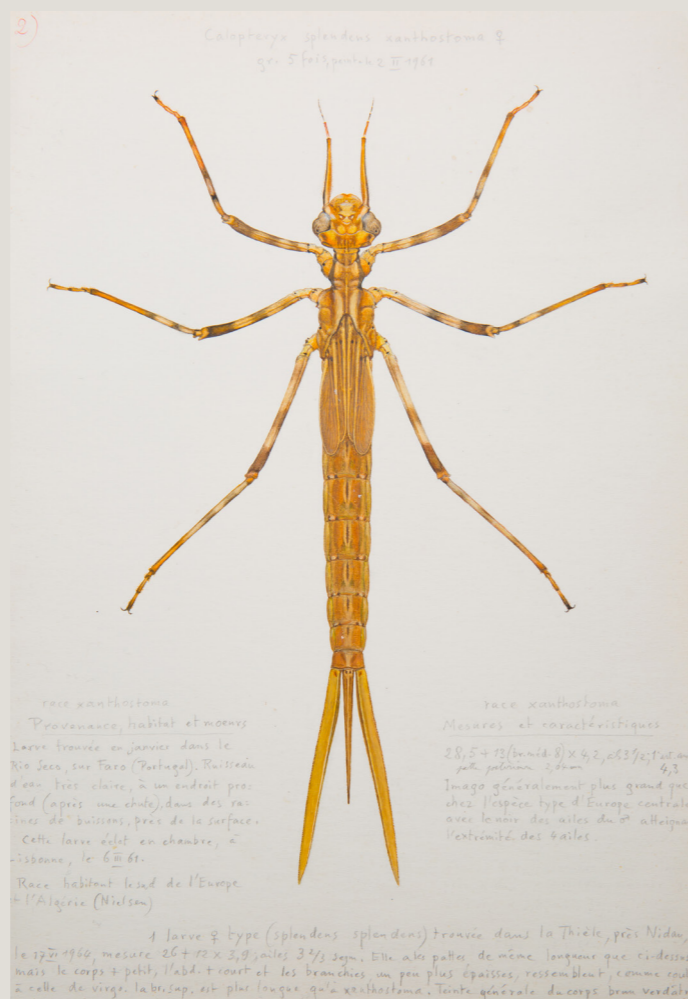 2)
Calopteryx splendens xanthostoma ♀
gr. 5 fois, peint le 2 II 1961
race xanthostoma
Provenance, habitat et moeurs
Larve trouvée en janvier dans le
Rio Seco, sur Faro (Portugal). Ruisseau
d'eau très claire, à un endroit pro-
fond (après une chute), dans des ra-
cines de buissons, près de la surface.
Cette larve éclot en chambre, à
Lisbonne, le 6 III 61.
Race habitant le sud de l'Europe
et l'Algérie (Nielsen)
race xanthostoma
Mesures et caractéristiques
28,5 + 13 (br. médi. 8) x 4,2,
4,3
Imago généralement plus grand que
chez l'espèce type d'Europe centrale
avec le noir des ailes du ♂ atteignant
l'extrémité des 4 ailes.
1 larve ♀ type (splendens splendens) trouvée dans la Thièle, près Nidau,
le 17 VI 1964, mesure 26 + 12 x 3,9, ailes 3 2/3 segm. Elle a les pattes de même longueur que ci-dessus
mais le corps + petit, l'abd. + court et les branchies un peu plus épaisses, ressemblent, comme
à celle de virgo. lab. sup. est plus longue qu'à xanthostoma. Teinte générale du corps brun verdâtre